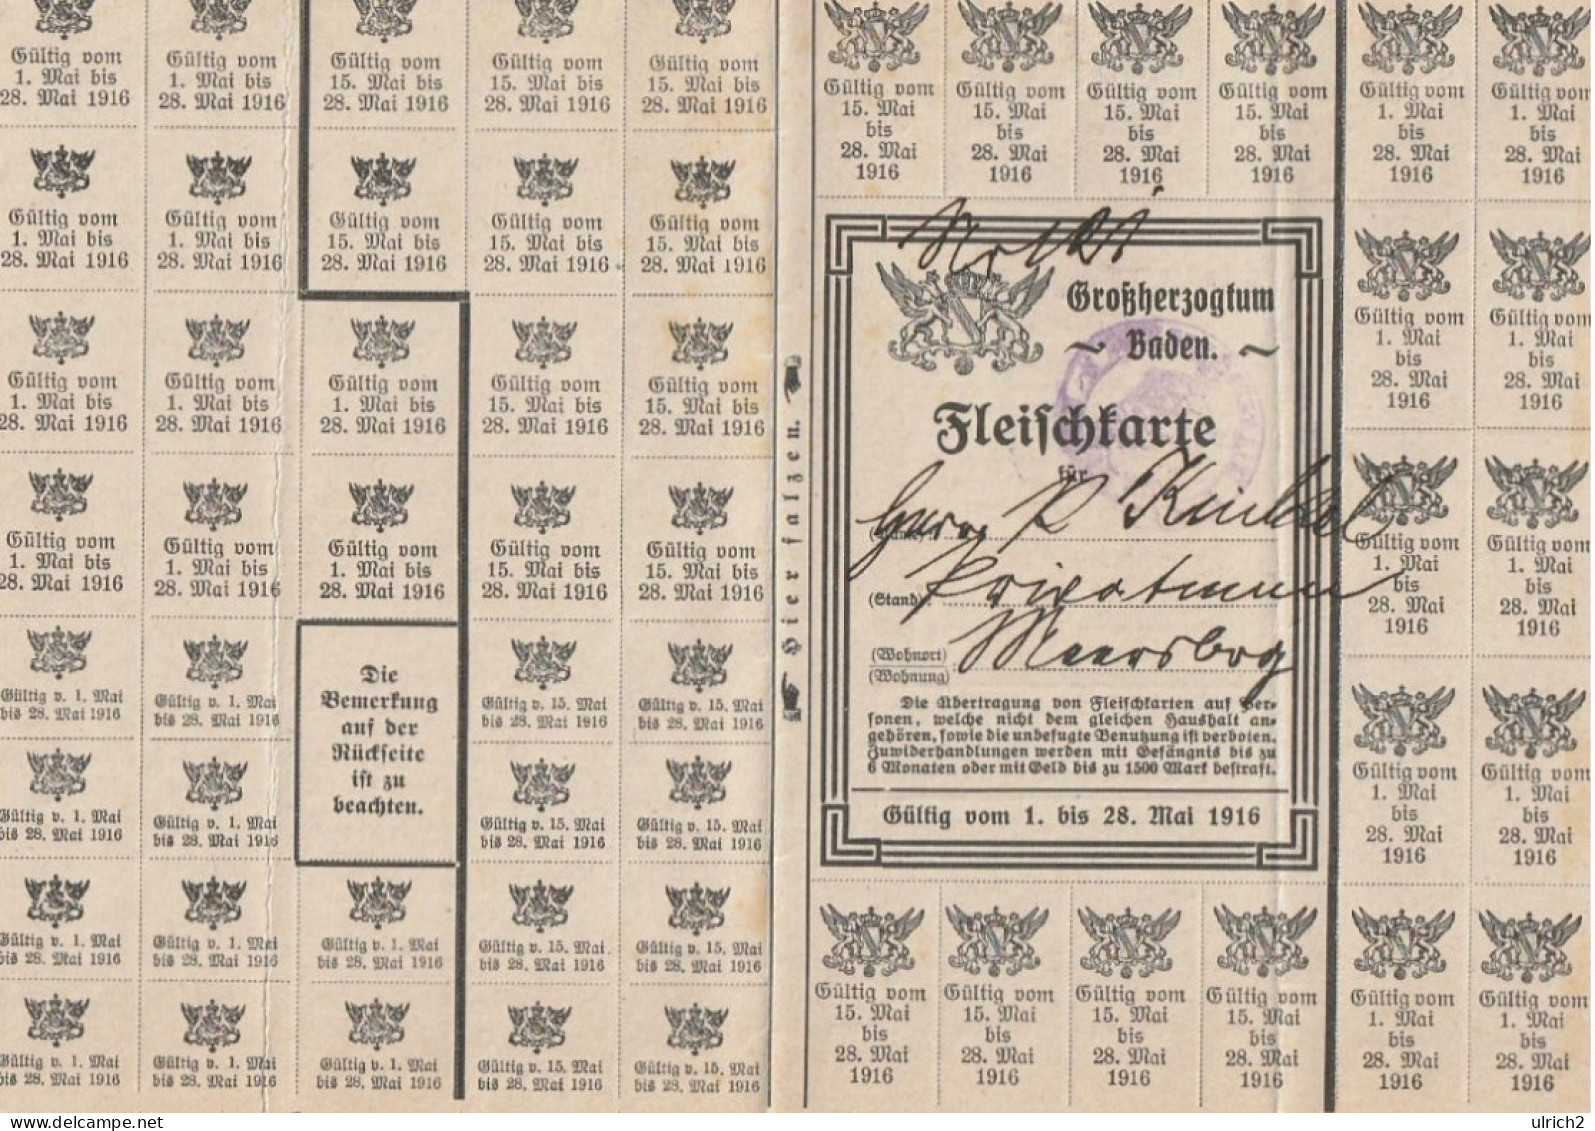 Gültig vom
1. Mai bis
28. Mai 1916
Gültig vom
1. Mai bis
28. Mai 1916
Gültig vom
15. Mai bis
28. Mai 1916
Gültig vom
15. Mai bis
28. Mai 1916
Gültig vom
15. Mai bis
28. Mai 1916
Gültig vom
1. Mai bis
28. Mai 1916
Gültig vom
1. Mai bis
28. Mai 1916
Gültig vom
15. Mai bis
28. Mai 1916
Gültig vom
15. Mai bis
28. Mai 1916
Gültig vom
15. Mai bis
28. Mai 1916
Gültig vom
1. Mai bis
28. Mai 1916
Gültig vom
1. Mai bis
28. Mai 1916
Gültig vom
1. Mai bis
28. Mai 1916
Gültig vom
15. Mai bis
28. Mai 1916
Gültig vom
15. Mai bis
28. Mai 1916
Gültig vom
1. Mai bis
28. Mai 1916
Gültig vom
1. Mai bis
28. Mai 1916
Gültig vom
1. Mai bis
28. Mai 1916
Gültig vom
15. Mai bis
28. Mai 1916
Gültig vom
15. Mai bis
28. Mai 1916
Gültig v. 1. Mai
bis 28. Mai 1916
Gültig v. 1. Mai
bis 28. Mai 1916
Die
Bemerkung
auf der
Rückseite
ist zu
beachten.
Gültig v. 15. Mai
bis 28. Mai 1916
Gültig v. 15. Mai
bis 28. Mai 1916
Gültig v. 1. Mai
bis 28. Mai 1916
Gültig v. 1. Mai
bis 28. Mai 1916
Gültig v. 15. Mai
bis 28. Mai 1916
Gültig v. 15. Mai
bis 28. Mai 1916
Gültig v. 1. Mai
bis 28. Mai 1916
Gültig v. 1. Mai
bis 28. Mai 1916
Gültig v. 1. Mai
bis 28. Mai 1916
Gültig v. 15. Mai
bis 28. Mai 1916
Gültig v. 15. Mai
bis 28. Mai 1916
Gültig v. 1. Mai
bis 28. Mai 1916
Gültig v. 1. Mai
bis 28. Mai 1916
Gültig v. 1. Mai
bis 28. Mai 1916
Gültig v. 15. Mai
bis 28. Mai 1916
Gültig v. 15. Mai
bis 28. Mai 1916
Hier falzen.
Gültig vom
15. Mai
bis
28. Mai
1916
Gültig vom
15. Mai
bis
28. Mai
1916
Gültig vom
15. Mai
bis
28. Mai
1916
Gültig vom
15. Mai
bis
28. Mai
1916
Gültig vom
1. Mai
bis
28. Mai
1916
Gültig vom
1. Mai
bis
28. Mai
1916
Großherzogtum
Baden.
Fleischkarte
für
Herrn
(Stand): Privatmann
(Wohnort) Meersburg
(Wohnung)
Die Übertragung von Fleischkarten auf Per-
sonen, welche nicht dem gleichen Haushalt an-
gehören, sowie die unbefugte Benutzung ist verboten.
Zuwiderhandlungen werden mit Gefängnis bis zu
6 Monaten oder mit Geld bis zu 1500 Mark bestraft.
Gültig vom 1. bis 28. Mai 1916
Gültig vom
1. Mai
bis
28. Mai
1916
Gültig vom
1. Mai
bis
28. Mai
1916
Gültig vom
1. Mai
bis
28. Mai
1916
Gültig vom
1. Mai
bis
28. Mai
1916
Gültig vom
1. Mai
bis
28. Mai
1916
Gültig vom
1. Mai
bis
28. Mai
1916
Gültig vom
15. Mai
bis
28. Mai
1916
Gültig vom
15. Mai
bis
28. Mai
1916
Gültig vom
15. Mai
bis
28. Mai
1916
Gültig vom
15. Mai
bis
28. Mai
1916
Gültig vom
1. Mai
bis
28. Mai
1916
Gültig vom
1. Mai
bis
28. Mai
1916
www.delcampe.net
ulrich2